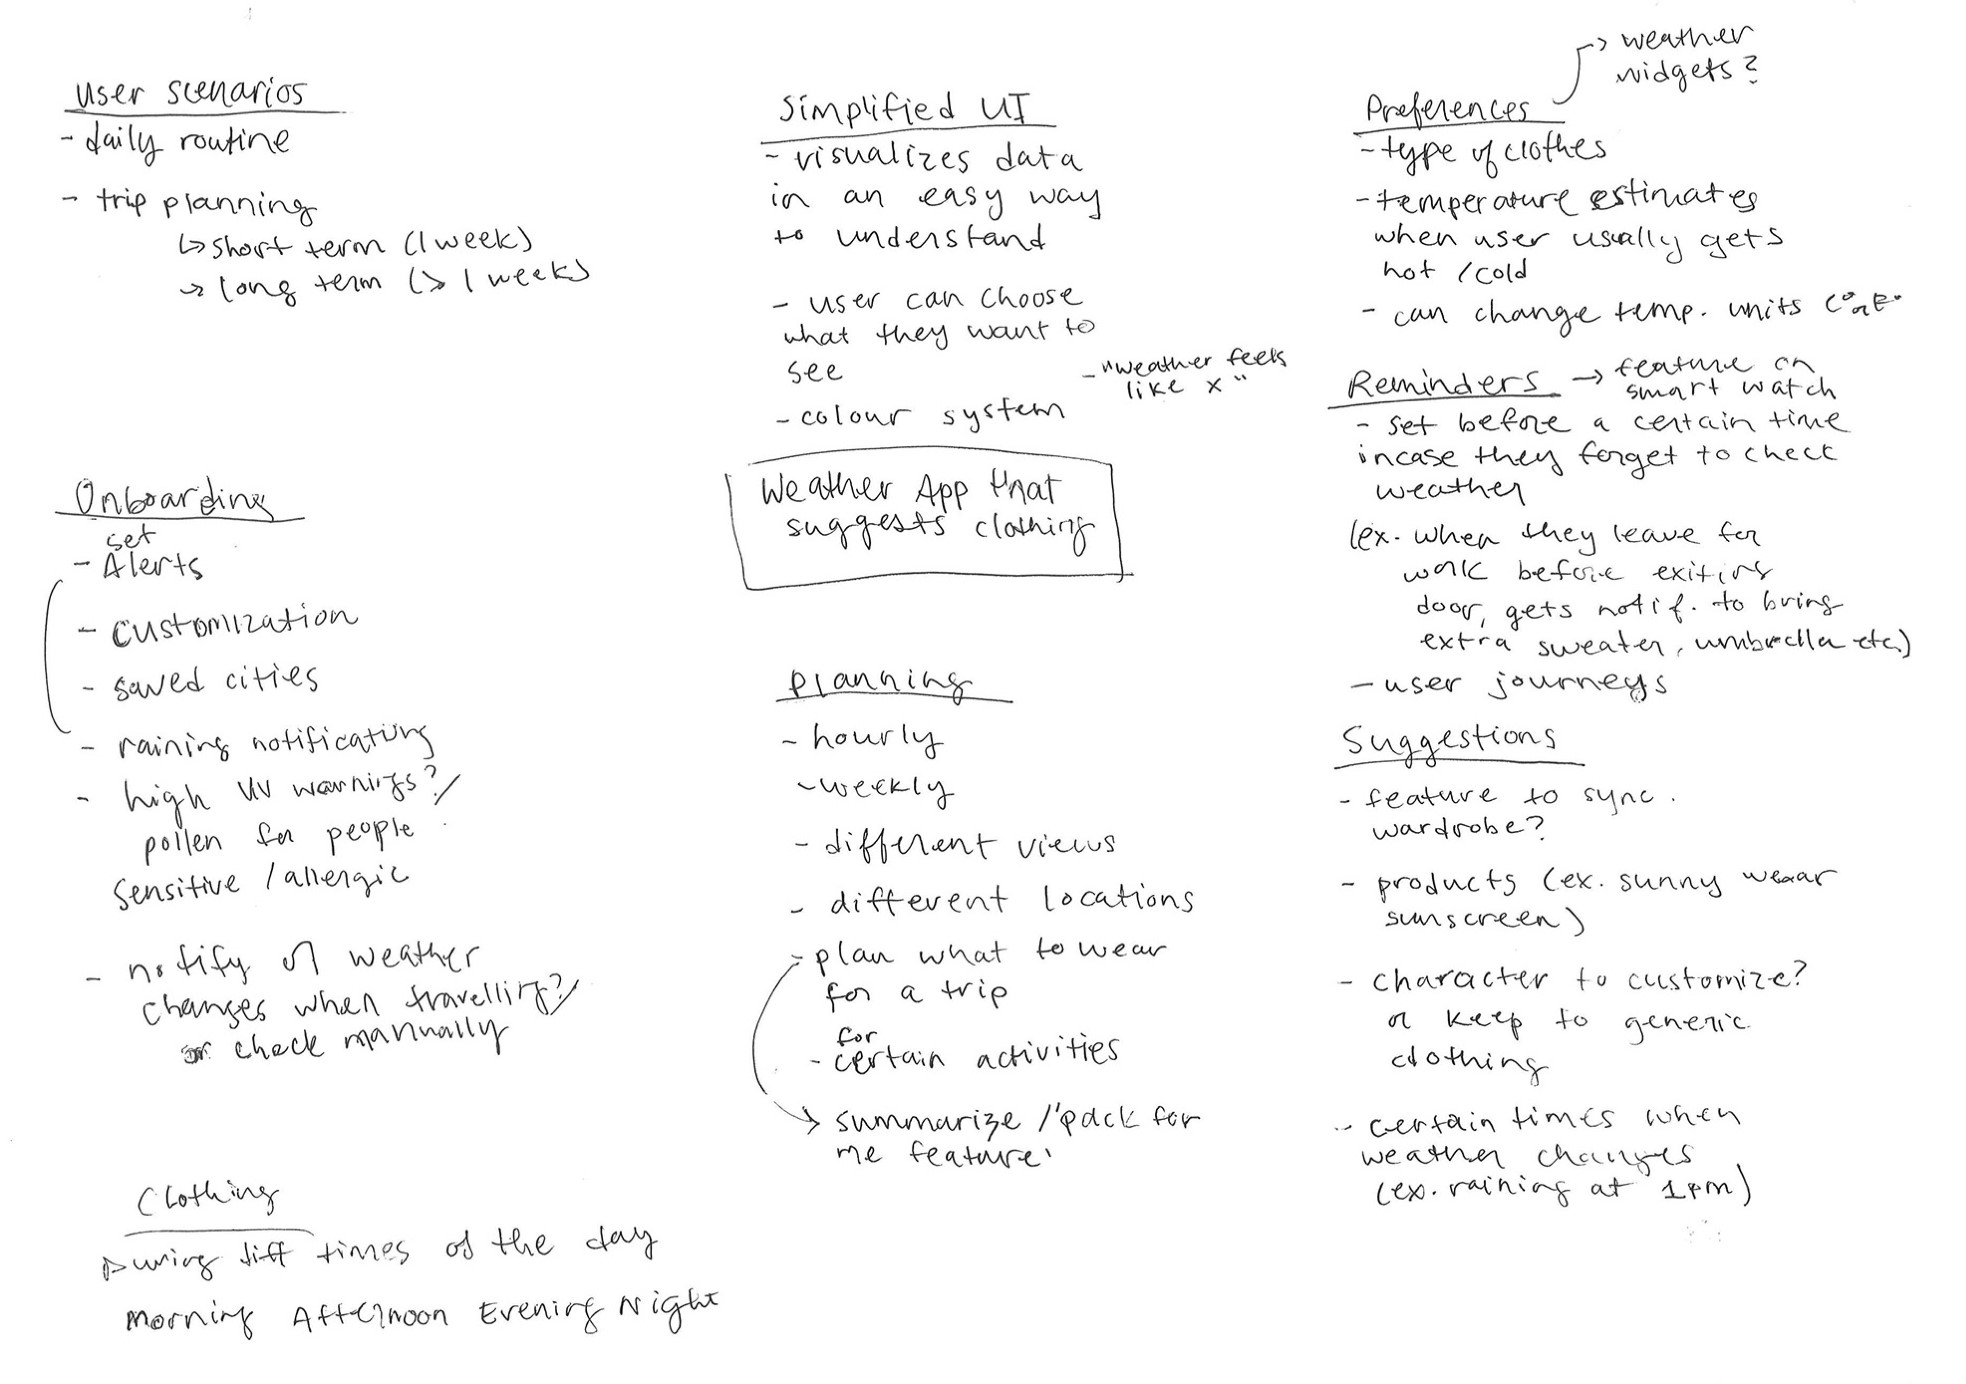 User scenarios
- daily routine
- trip planning
↳ short term (1 week)
→ long term (> 1 week)
Onboarding
set
- Alerts
- customization
- saved cities
- raining notifications
- high UV warnings?/
pollen for people
sensitive / allergic
- notify of weather
changes when travelling?/
or check manually
Clothing
During diff times of the day
Morning Afternoon Evening Night
Simplified UI
- visualizes data
in an easy way
to understand
- user can choose
what they want to
see
- "weather feels
like x"
- colour system
Weather App that
suggests clothing
Planning
- hourly
- weekly
- different views
- different locations
- plan what to wear
for a trip
for
- certain activities
→ summarize / "pack for
me feature'
→ weather
widgets?
Preferences
- type of clothes
- temperature estimates
when user usually gets
hot / cold
- can change temp. units
Reminders → feature on
smart watch
- set before a certain time
incase they forget to check
weather
(ex. when they leave for
work before exiting
door, gets notif. to bring
extra sweater, umbrella etc.)
- user journeys
Suggestions
- feature to sync.
wardrobe?
- products (ex. sunny wear
sunscreen)
- character to customize?
or keep to generic
clothing
- certain times when
weather changes
(ex. raining at 1pm)